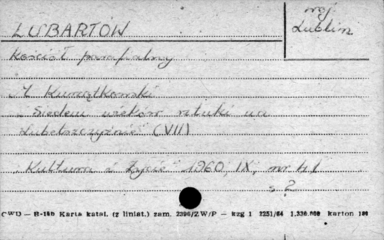 LUBARTÓW
woj.
Lublin
Kościół parafialny
Siedem wieków sztuki na
Lubelszczyźnie" (VII)
"Kultura i Życie" 1960, IX, nr 41
s 2
CWD — B-16b Karta katal. (z liniat.) zam. 2396/Z/W/P — kzg 1 3251/64 1,330.000 karton 180